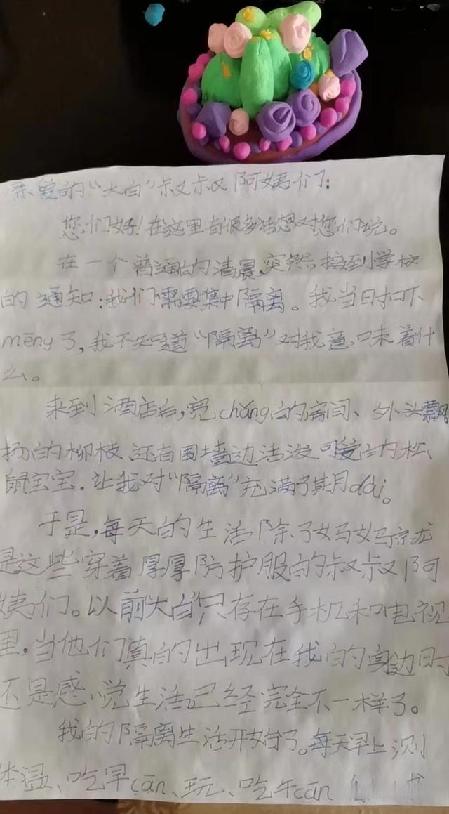 亲爱的“大白”叔叔阿姨们:
您们好!在这里有很多话想对您们说。
在一个普通的清晨,突然接到学校
的通知:我们需要集中隔离。我当时吓
mēng了,我不知道“隔离”对我意味着什
么。
来到酒店后,宽chǎng的房间、外头飘
扬的柳枝,还有围墙边活泼可爱的松
鼠宝宝,让我对“隔离”充满了期dài。
于是,每天的生活除了妈妈就
是这些穿着厚厚防护服的叔叔阿
姨们。以前大白只存在手机和电视
里,当他们真的出现在我的身边时
还是感觉生活已经完全不一样了。
我的隔离生活开始了。每天早上测
体温、吃早cān、玩、吃午cān